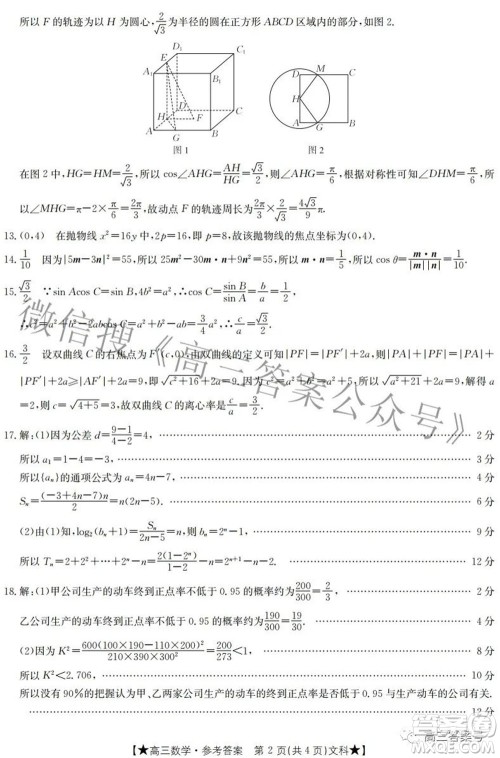 所以 F 的轨迹为以 H 为圆心,2/√3为半径的圆在正方形 ABCD 区域内的部分,如图 2.
D₁ C₁
E
A₁ B₁ D M C
H
D C
H F
A G B A G B
图 1 图 2
在图 2 中,HG=HM=2/√3,所以 cos∠AHG=AH/HG=√3/2,则∠AHG=π/6,根据对称性可知∠DHM=π/6,所
以∠MHG=π-2×π/6=2π/3,故动点 F 的轨迹周长为2π/3×2/√3=4√3/9π.
13.(0,4) 在抛物线 x²=16y 中,2p=16,即 p=8,故该抛物线的焦点坐标为(0,4).
14.1/10 因为|5m-3n|²=55,所以 25m²-30m·n+9n²=55,所以 m·n=1/5,所以 cos θ=m·n/|m||n|=1/10.
15.√3/2 ∵sin Acos C=sin B,4b²=a²,∴cos C=sin B/sin A=b/a=1/2,
∴c²=a²+b²-2abcos C=a²+b²-ab=3/4a²,∴c/a=√3/2.
16.3/2 设双曲线 C 的右焦点为 F′(c,0),由双曲线的定义可知|PF|=|PF′|+2a,则|PA|+|PF|=|PA|+
|PF′|+2a≥|AF′|+2a=9,即√c²+16+2a=9.因为c²=a²+5,所以√a²+21+2a=9,解得 a
=2,则 c=√4+5=3,故双曲线 C 的离心率是c/a=3/2.
17.解:(1)因为公差 d=9-1/4-2=4, 2 分
所以 a₁=1-4=-3, 3 分
所以{aₙ}的通项公式为 aₙ=4n-7, 4 分
Sₙ=(-3+4n-7)n/2=n(2n-5). 6 分
(2)由(1)知,log₂(bₙ+1)=Sₙ/2n-5=n,所以 bₙ=2ⁿ-1, 9 分
所以 Tₙ=2+2²+…+2ⁿ-n=2(1-2ⁿ)/1-2-n=2ⁿ⁺¹-n-2. 12 分
18.解:(1)甲公司生产的动车终到正点率不低于 0.95 的概率约为200/300=2/3, 2 分
乙公司生产的动车终到正点率不低于 0.95 的概率约为190/300=19/30. 4 分
(2)因为 K²=600(100×190-110×200)²/210×390×300²=200/273<1, 8 分
所以 K²<2.706, 10 分
所以没有 90%的把握认为甲、乙两家公司生产的动车的终到正点率是否低于 0.95 与生产动车的公司有关.
12 分
【★高三数学·参考答案 第 2 页(共 4 页)文科★】
微信搜《高三答案公众号》
高三答案号